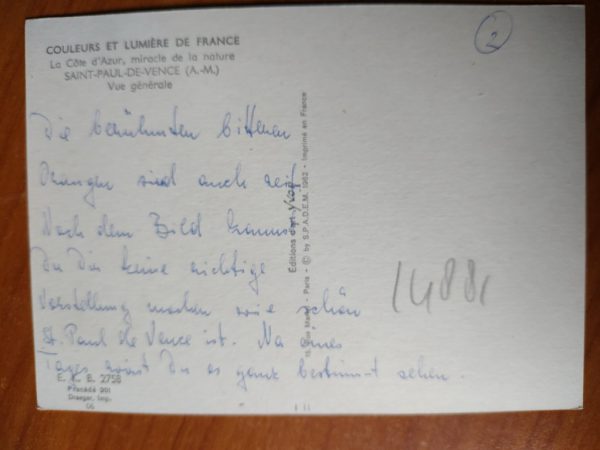 COULEURS ET LUMIÈRE DE FRANCE
La Côte d'Azur, miracle de la nature
SAINT-PAUL-DE-VENCE (A.-M.)
Vue générale
2
Die berühmten bitteren
Orangen sind auch reif
Nach dem Bild kannst
Du Dir keine richtige
Vorstellung machen wie schön
St. Paul de Vence ist. Na eines
Tages wirst Du es ganz bestimmt sehen.
E. C. B. 2758
Procédé 301
Draeger, Imp.
06
Editions d'art Yvon
15, Rue Martel - Paris - © by S.P.A.D.E.M. 1962 - Imprimé en France
1488